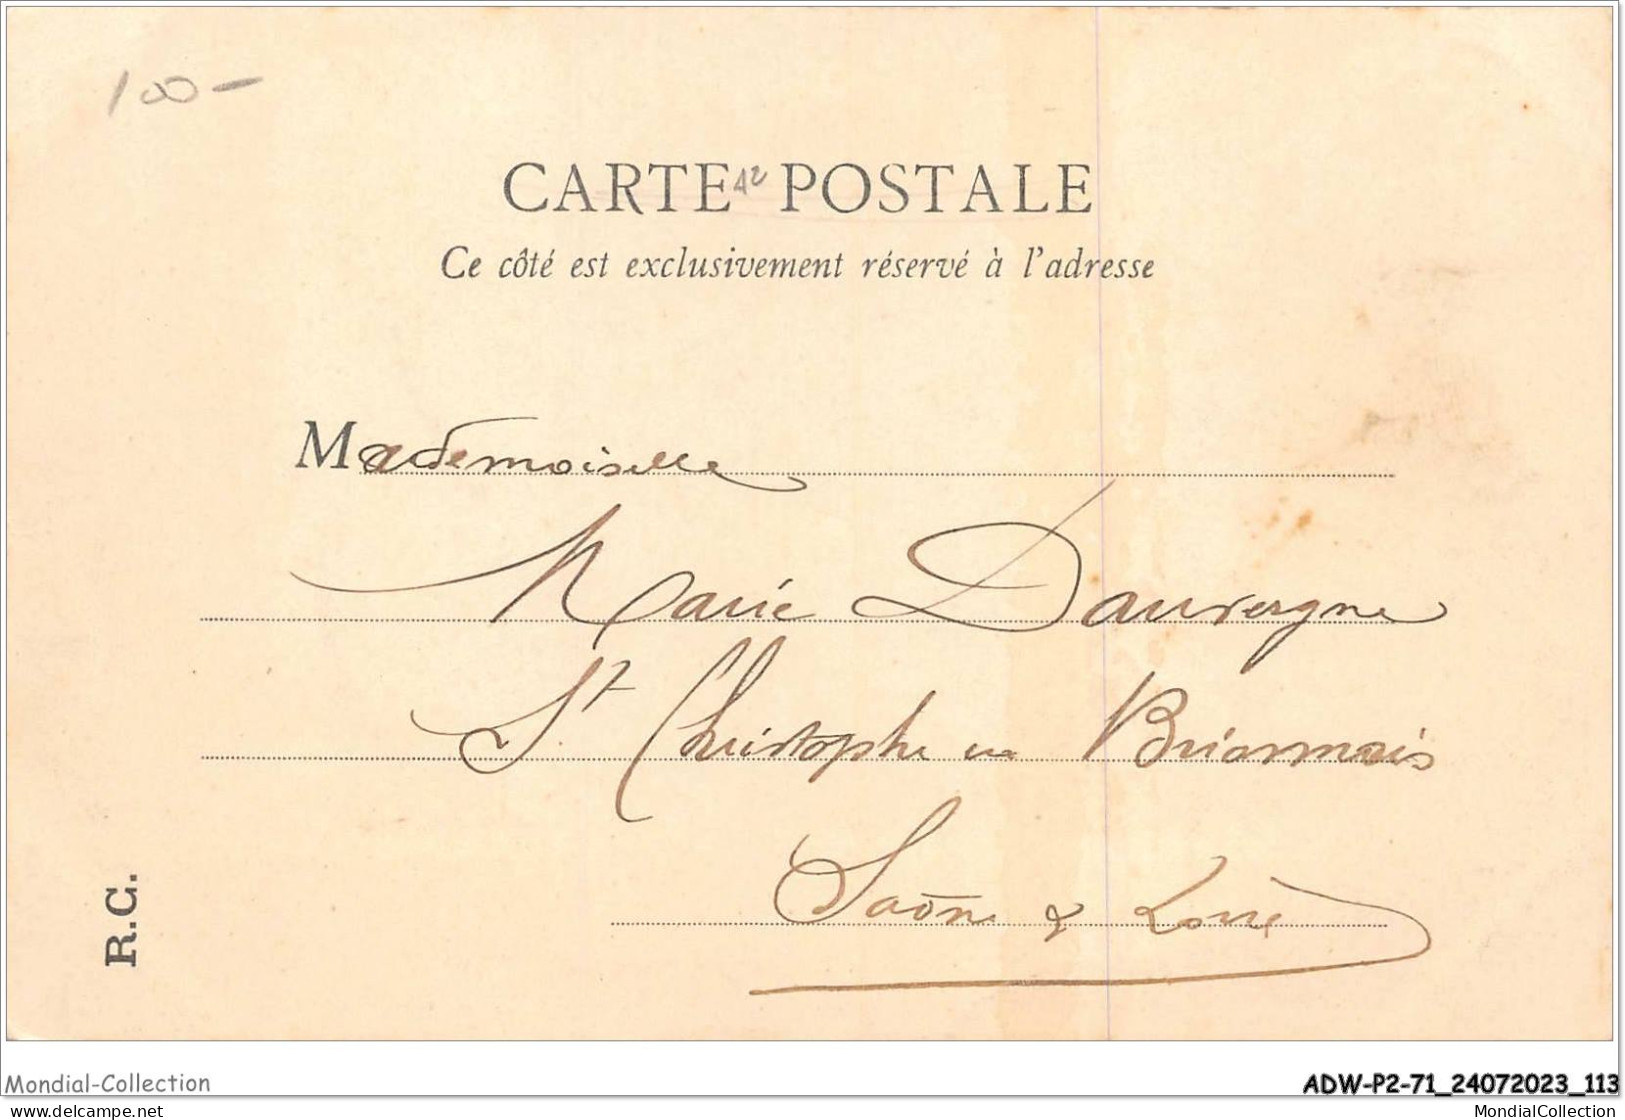 100-
CARTE POSTALE
42
Ce côté est exclusivement réservé à l'adresse
Mademoiselle
Marie Dauvergne
St Christophe en Briannais
Saône & Loire
R.C.
Mondial-Collection
ADW-P2-71_24072023_113
www.delcampe.net
MondialCollection